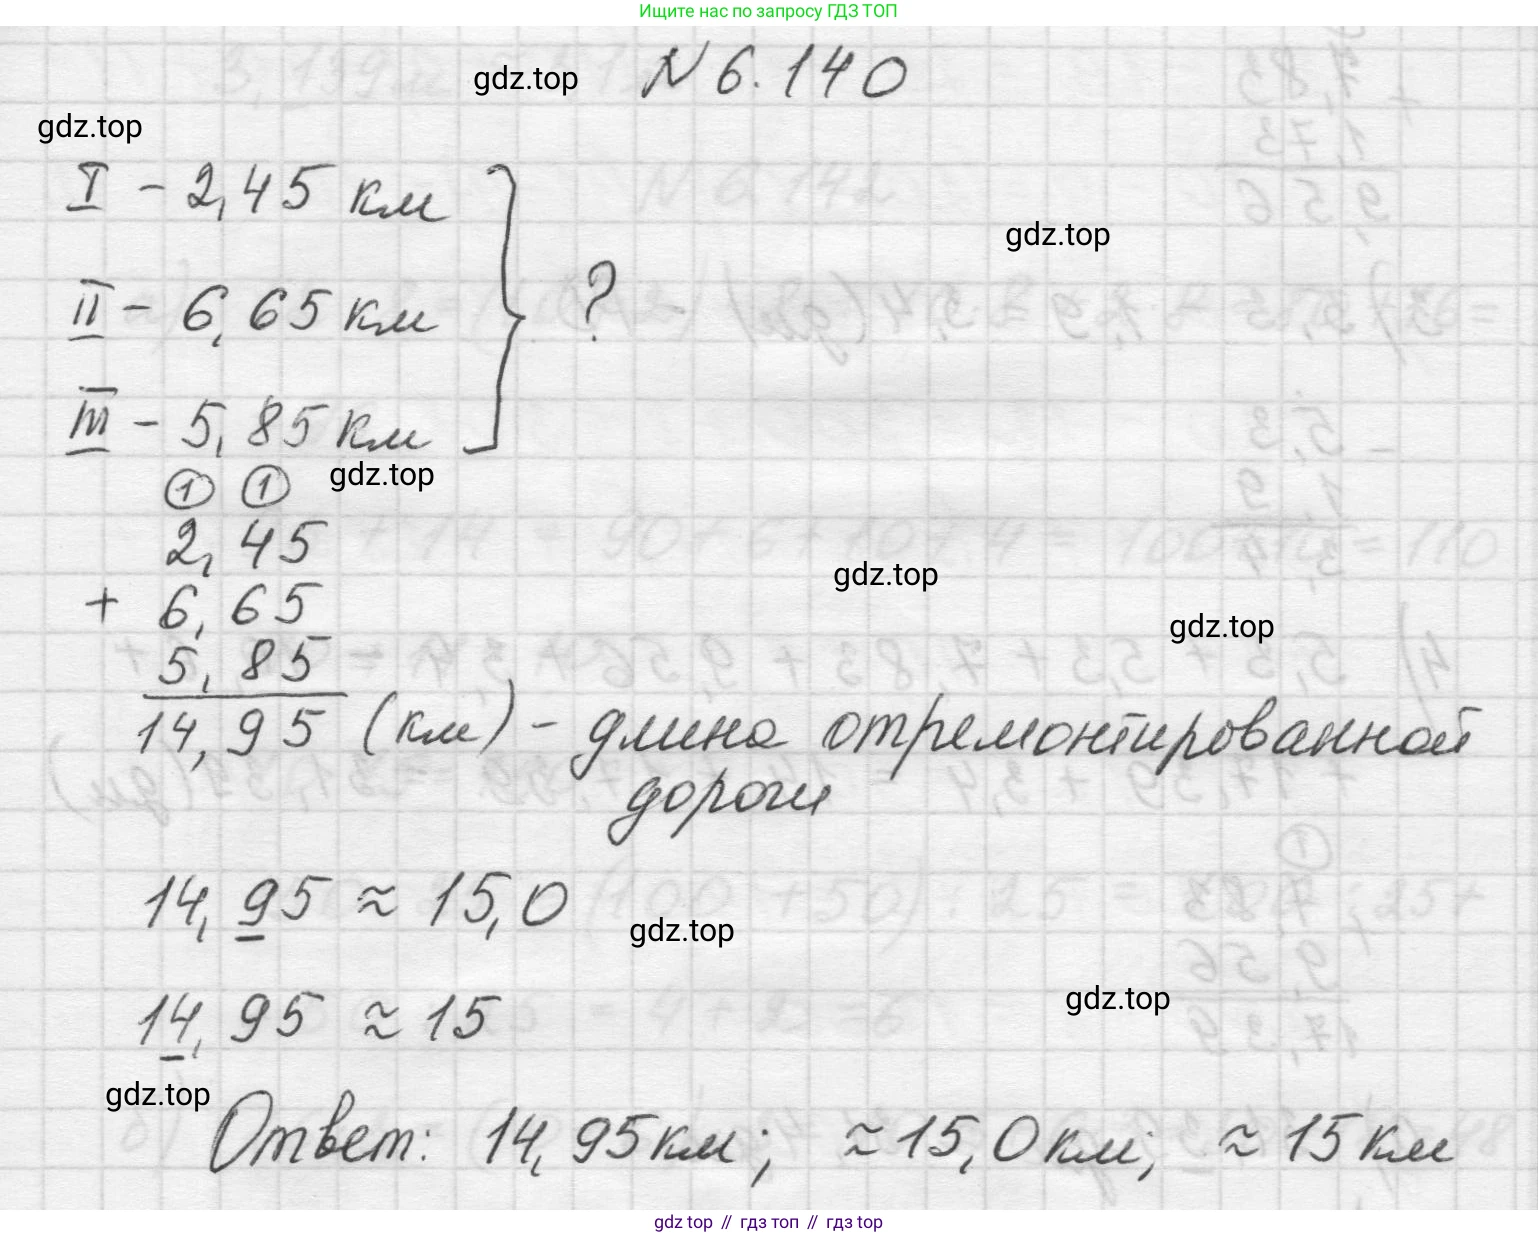 Ищите нас по запросу ГДЗ ТОП
gdz.top
N 6.140
gdz.top
I - 2,45 км
gdz.top
II - 6,65 км
?
III - 5,85 км
gdz.top
1 1
2,45
gdz.top
+ 6,65
gdz.top
5,85
14,95 (км) - длина отремонтированной
дороги
14,95 ≈ 15,0
gdz.top
14,95 ≈ 15
gdz.top
gdz.top
Ответ: 14,95 км; ≈ 15,0 км; ≈ 15 км
gdz.top // гдз топ // гдз.top